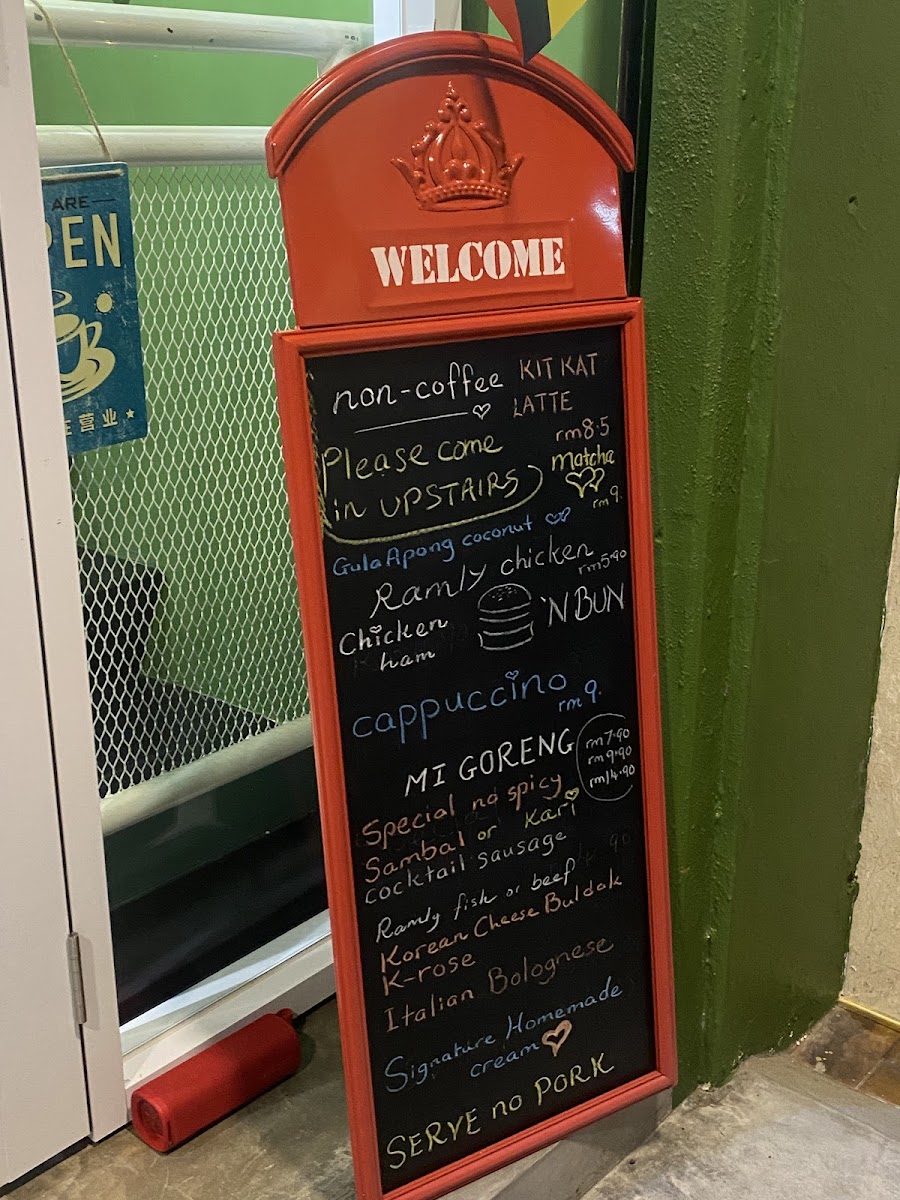 ARE
PEN
营业
WELCOME
non-coffee
KIT KAT
LATTE
rm8.5
Please come
in UPSTAIRS
matcha
rm9.
Gula Apong coconut
Ramly chicken
rm5.90
'N BUN
Chicken
ham
cappuccino
rm9.
MI GORENG
rm7.90
rm9.90
rm14.90
Special no spicy
Sambal or Kari
cocktail sausage
Ramly fish or beef
Korean Cheese Buldak
K-rose
Italian Bolognese
Signature Homemade
cream
SERVE no PORK